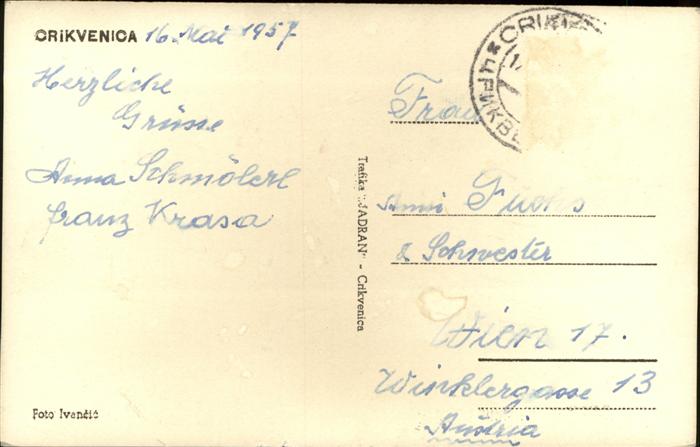 CRIKVENICA 16. Mai 1957
Herzliche
Grüsse
Anna Schmölerl
Franz Krasa
Foto Ivančić
Trafika „JADRAN“ - Crikvenica
CRIK
ЦРИКВЕ
Frau
Anni Fuchs
& Schwester
Wien 17.
Winklergasse 13
Austria